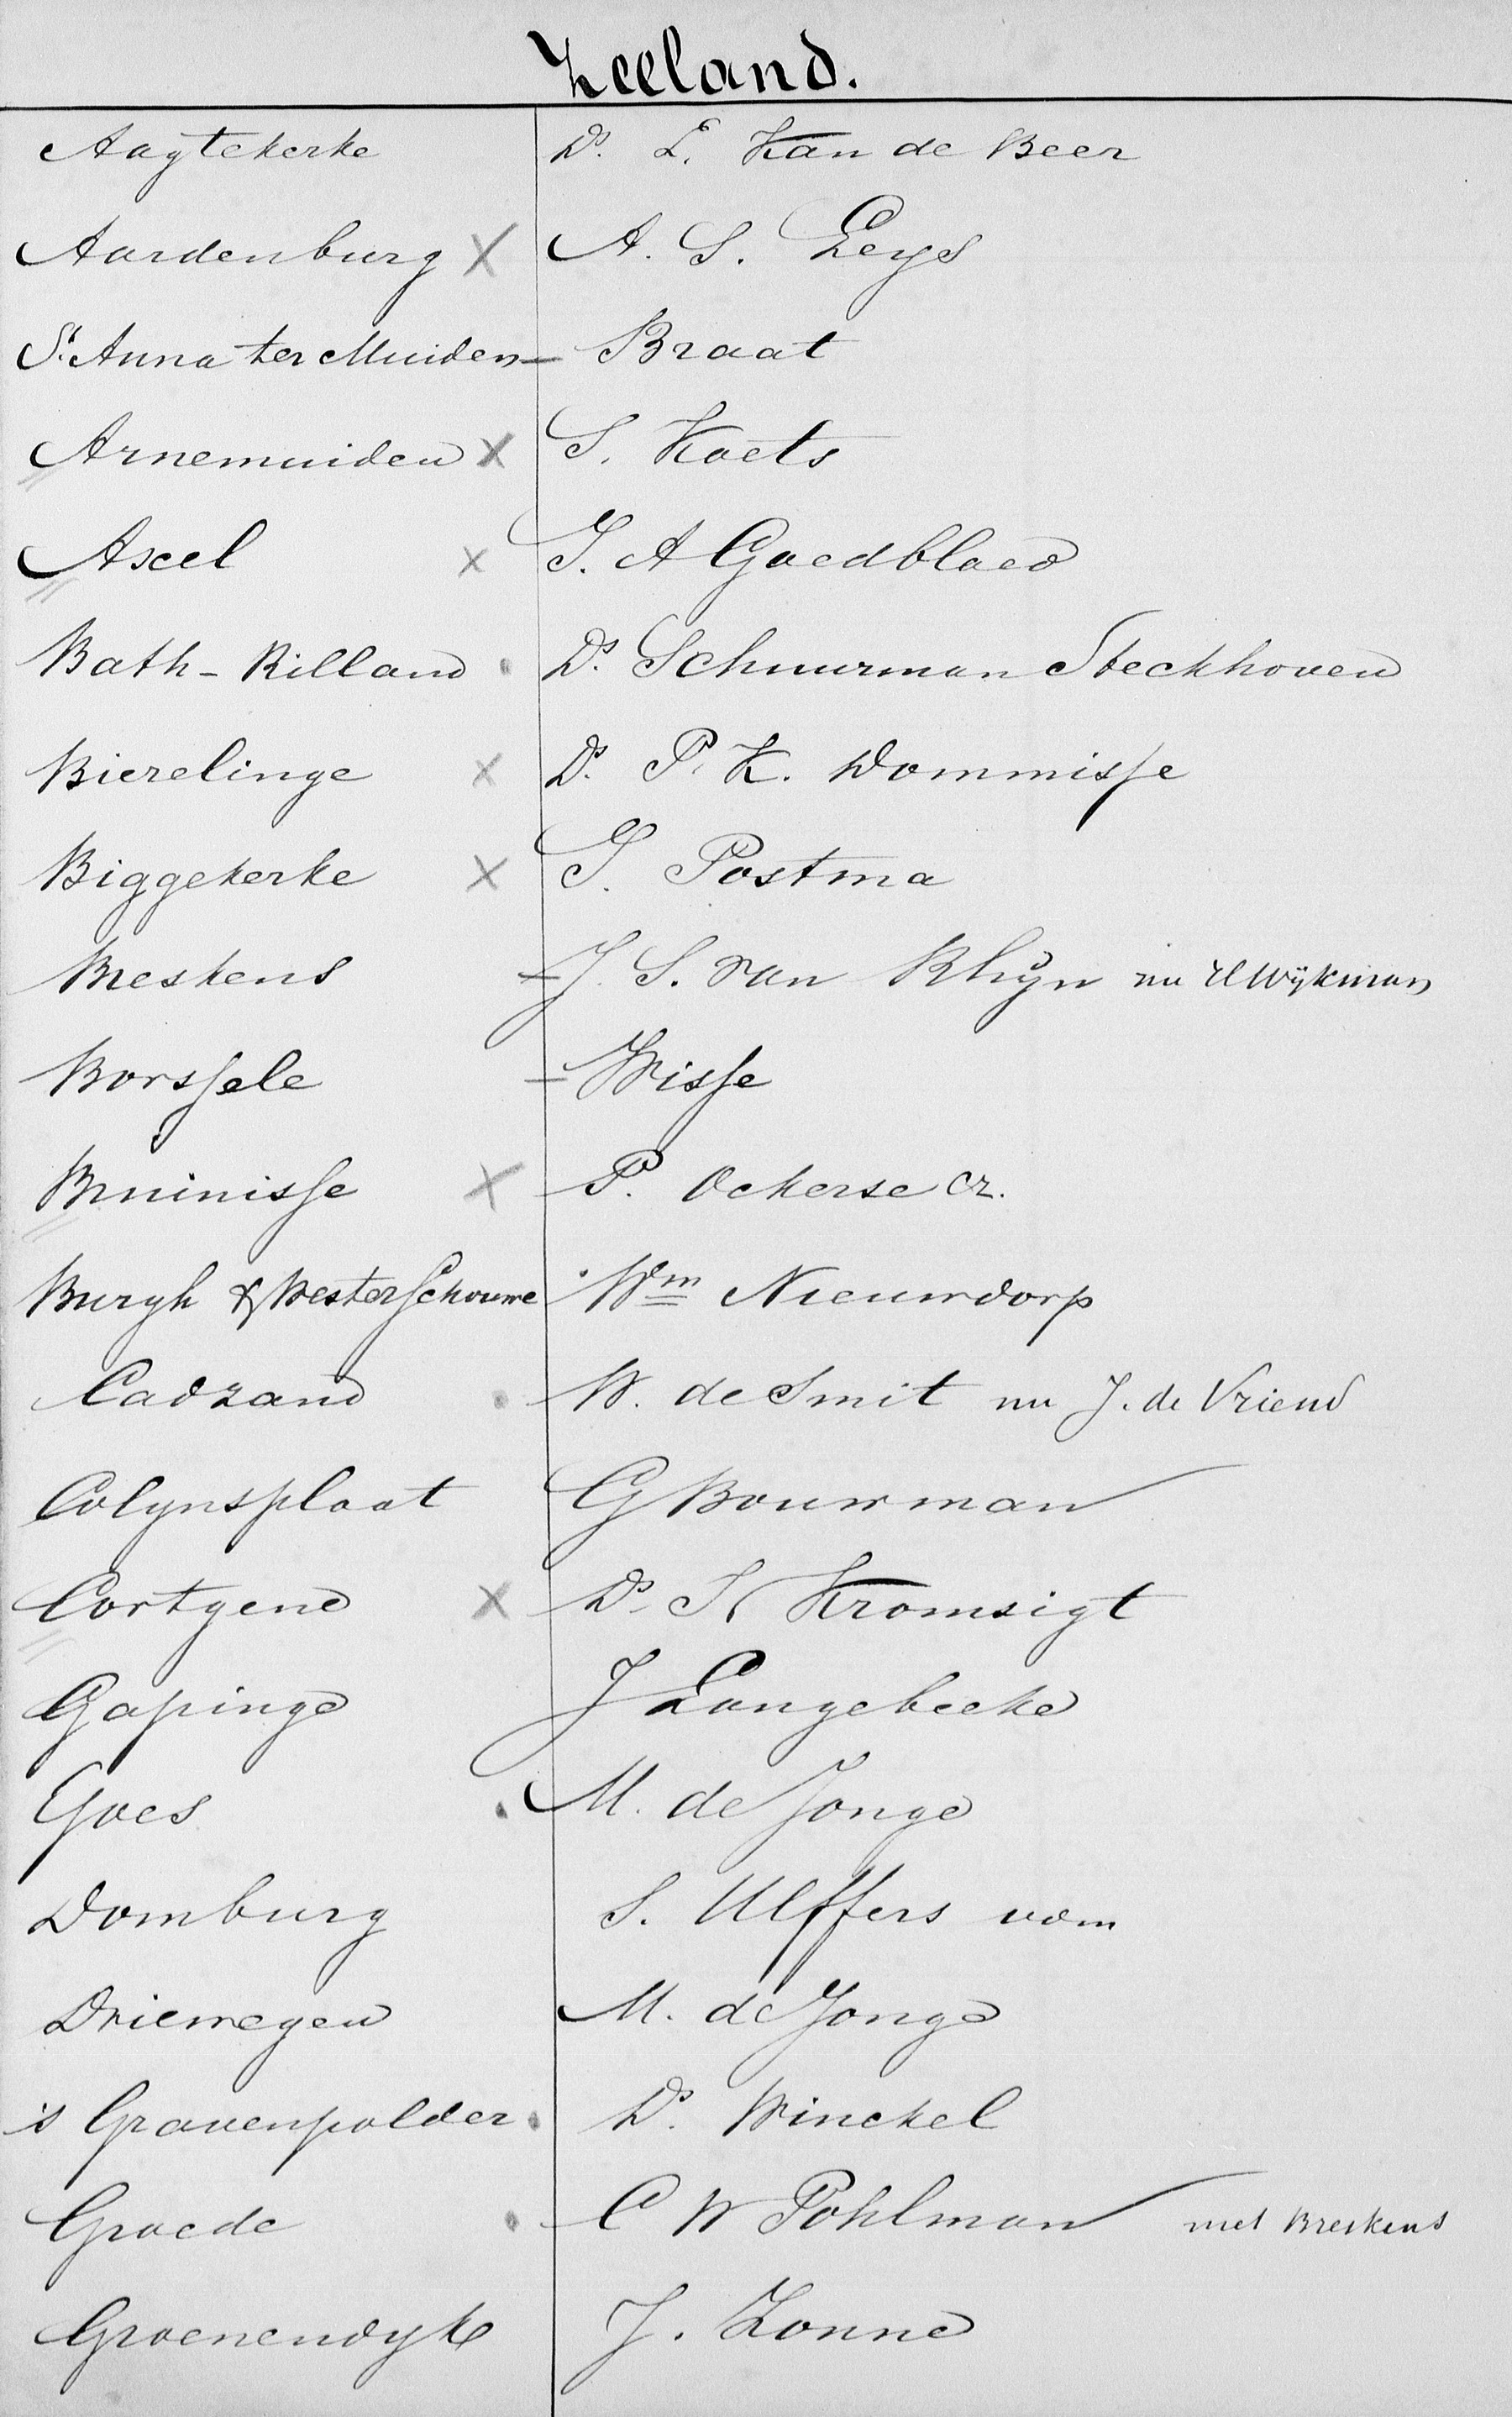 Zeeland.
Aagtekerke Ds. L. Kan de Beer
Aardenburg X A. S. Leys
St. Anna ter Muiden - Braat
Arnemuiden X S. Koets
Axel x J. A Goedbloed
Bath-Rilland Ds. Schuurman Steckhoven
Bierelinge x Ds. P. K. Dommisse
Biggekerke X J. Postma
Breskens - J. S. van Rhijn nu Wijkman
Borssele - Wisse
Bruinisse X P. Ockerse Cz.
Burgh & Westerschouwe Wm Nieuwdorp
Cadzand W. de Smit nu J. de Vriend
Colynsplaat G Bouwman
Cortgene X Ds. J. Kromsigt
Gapinge J Langebeeke
Goes M. de Jonge
Domburg S. Ulffers vdm
Driewegen M. de Jonge
's Gravenpolder Ds. Winckel
Groede C W Pohlman met Breskens
Groenendyk J. Zonne